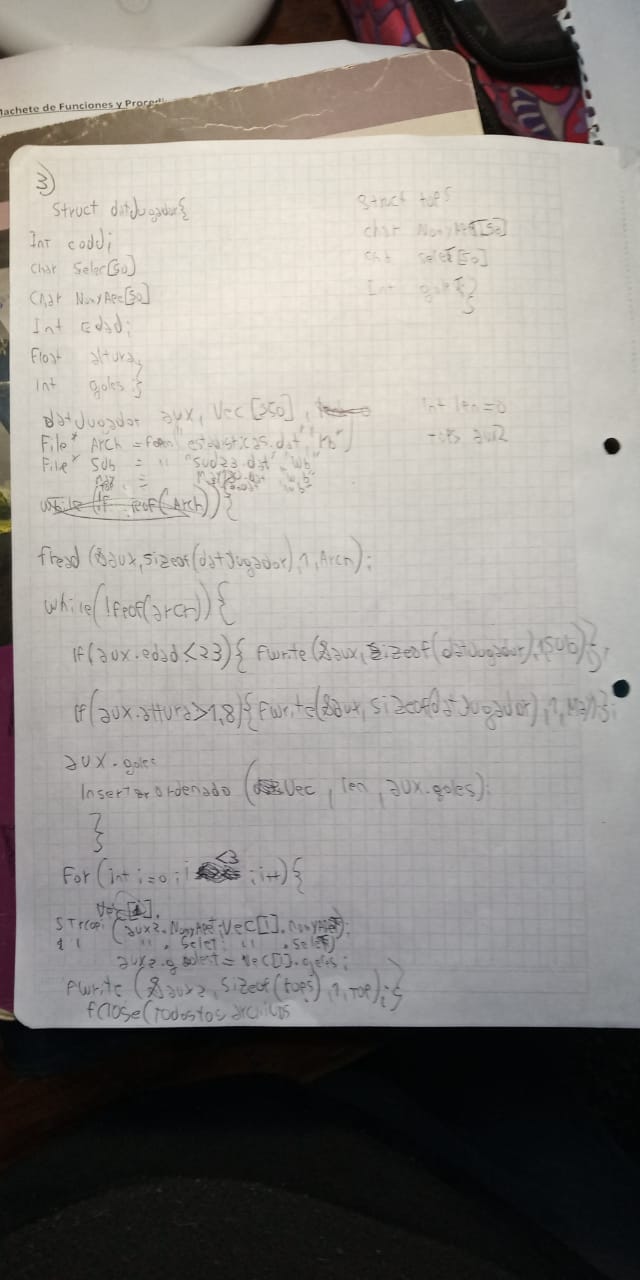 Machete de Funciones y Proced
3)
Struct datJugador{
Int codd;
Char Selec[50]
Char NomyApe[50]
Int Edad;
Float altura;
Int goles;}
Struct tops
char NomyApet[50]
selet[50]
Int golest}
datJugador aux, Vec[350],
Int len=0
tops aux2
File* Arch = fopen("estadisticas.dat" "rb")
File* Sub = " "sub23.dat" "wb"
while(!feof(Arch)){
fread(&aux,sizeof(datJugador),1,Arch);
while(!feof(arch)){
If(aux.edad<23){ Fwrite(&aux, sizeof(datJugador),1,Sub);}
If(aux.altura>1,8){Fwrite(&aux, sizeof(datJugador),1,May)};
aux.goles
InsertarOrdenado (Vec, len, aux.goles);
}
}
For (int i=0; i <3; i++){
Vec[1].
STrcopi (aux2.NomyApet;Vec[I].nomyApe);
" " " . Selet; " .Selet)
aux2.golest = Vec[I].goles;
Fwrite (&aux2, sizeof(tops),1,TOP);}
fclose(Todos los archivos